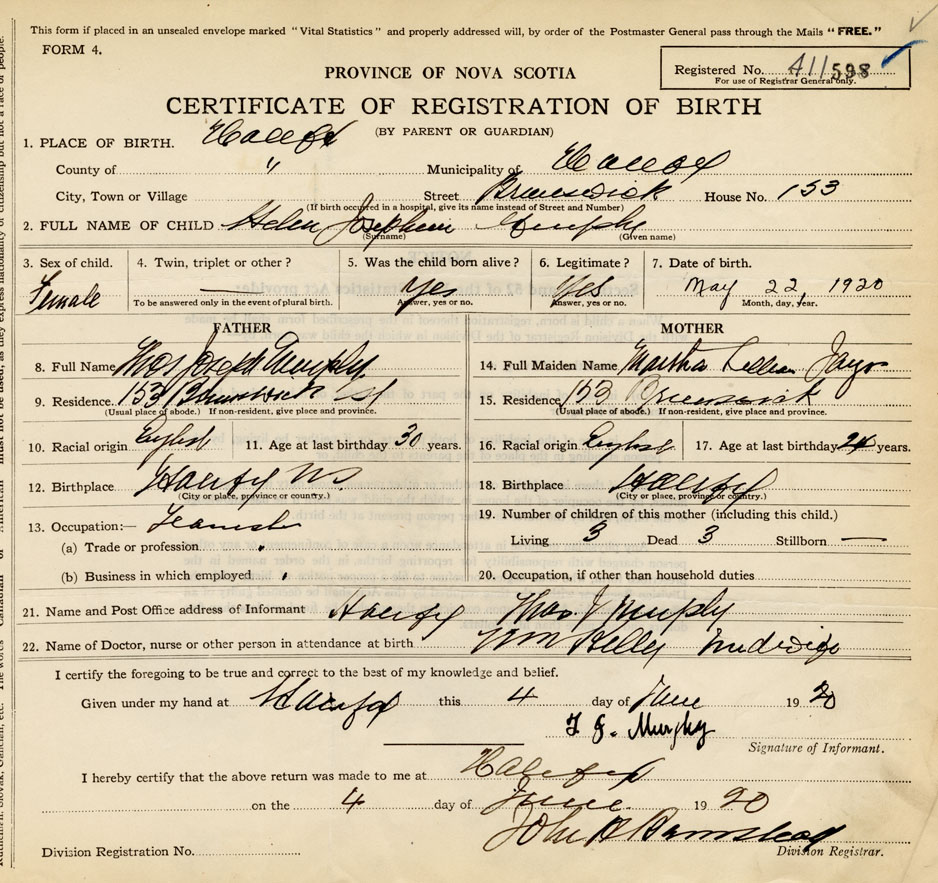 This form if placed in an unsealed envelope marked "Vital Statistics" and properly addressed will, by order of the Postmaster General pass through the Mails "FREE."
FORM 4.
Registered No. 411598
For use of Registrar General only.
PROVINCE OF NOVA SCOTIA
CERTIFICATE OF REGISTRATION OF BIRTH
(BY PARENT OR GUARDIAN)
1. PLACE OF BIRTH. Halifax
County of " Municipality of Halifax
City, Town or Village Street Brunswick House No. 153
(If birth occurred in a hospital, give its name instead of Street and Number)
2. FULL NAME OF CHILD Helen Josephine Murphy
(Surname) (Given name)
3. Sex of child. 4. Twin, triplet or other? 5. Was the child born alive? 6. Legitimate? 7. Date of birth.
Female — Yes Yes May 22, 1920
To be answered only in the event of plural birth. Answer, yes or no. Answer, yes or no. Month, day, year.
FATHER MOTHER
8. Full Name Thos Joseph Murphy 14. Full Maiden Name Martha Lillian
9. Residence. 153 Brunswick St 15. Residence 153 Brunswick
(Usual place of abode.) If non-resident, give place and province. (Usual place of abode.) If non-resident, give place and province.
10. Racial origin English 11. Age at last birthday 30 years. 16. Racial origin English 17. Age at last birthday years.
12. Birthplace Halifax N.S. 18. Birthplace Halifax
(City or place, province or country.) (City or place, province or country.)
13. Occupation:— Teamster 19. Number of children of this mother (including this child.)
(a) Trade or profession Living 3 Dead 3 Stillborn —
(b) Business in which employed 20. Occupation, if other than household duties
21. Name and Post Office address of Informant Halifax Thos. J Murphy
22. Name of Doctor, nurse or other person in attendance at birth Kelly midwife
I certify the foregoing to be true and correct to the best of my knowledge and belief.
Given under my hand at Halifax this 4 day of June 1920
T. J. Murphy
Signature of Informant.
I hereby certify that the above return was made to me at Halifax
on the 4 day of June 1920
John B Barnstead
Division Registration No. Division Registrar.